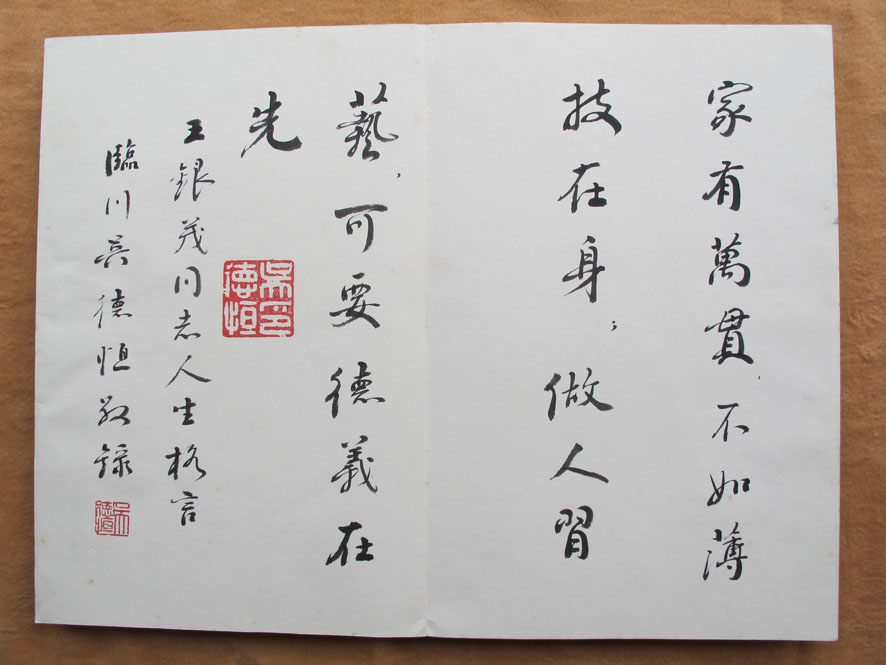 家有萬貫,不如薄
技在身;做人習
藝,可要德義在
先
王銀茂同志人生格言
臨川吳德恒敬錄
吳印德恒
吳德恒